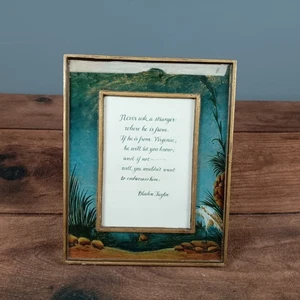 Never ask a stranger
where he is from.
If he is from Virginia,
he will let you know,
and if not ------
well, you wouldn't want
to embarrass him.
Bladen Taylor